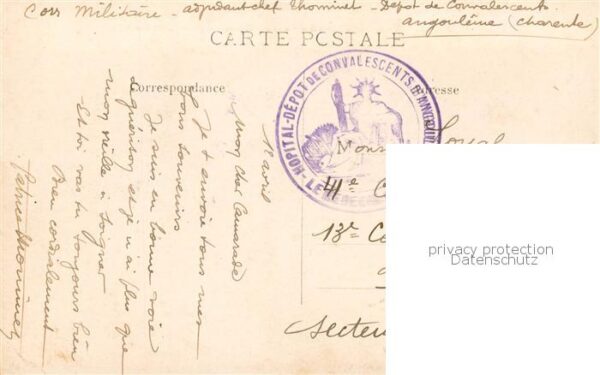 Cors Militaire - adjudant chef Thominet - Dépôt de Convalescents
angoulême (Charente)
CARTE POSTALE
Correspondance
Adresse
HÔPITAL-DÉPÔT DE CONVALESCENTS D'ANGOU
LE MÉDECIN
18 avril
Mon cher Camarade
Je t'envoie tous mes
bons souvenirs
Je suis en bonne voie
de guérison et je n'ai plus que
mon oreille à soigner
Et toi vas tu toujours bien
Bien cordialement
Thominet
Mons Loyal
4e C
13e Co
Secteu
privacy protection
Datenschutz